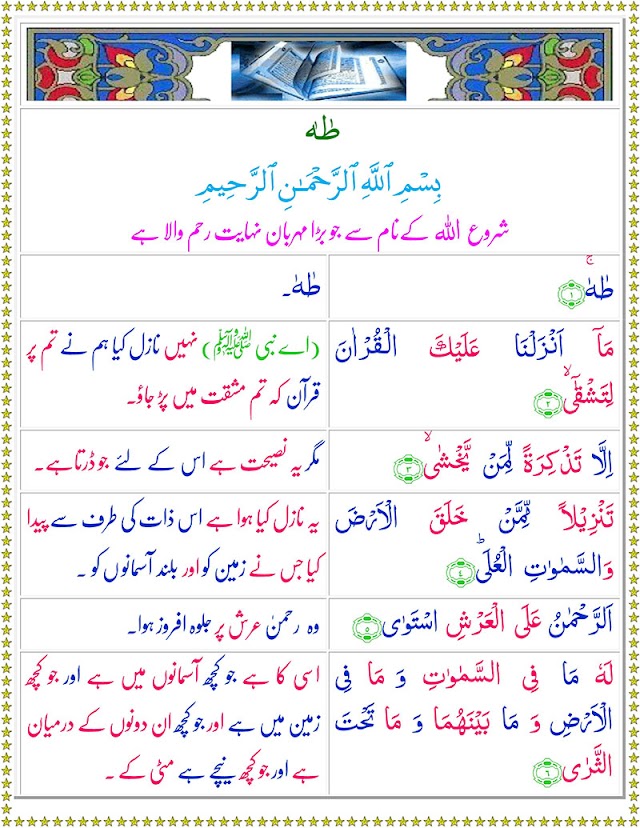 طٰہٰ
بِسْمِ ٱللَّهِ ٱلرَّحْمَـٰنِ ٱلرَّحِيمِ
شروع اللہ کےنام سے جو بڑا مہربان نہایت رحم والا ہے
طٰهٰ ۚ ﴿۱﴾
طٰہٰ۔
مَاۤ اَنْزَلْنَا عَلَيْكَ الْقُرْاٰنَ
لِتَشْقٰٓى ۙ ﴿۲﴾
(اے نبی ﷺ) نہیں نازل کیا ہم نے تم پر
قرآن کہ تم مشقت میں پڑ جاؤ۔
اِلَّا تَذْكِرَةً لِّمَنْ يَّخْشٰى ۙ ﴿۳﴾
مگر یہ نصیحت ہے اس کے لئے جو ڈرتا ہے۔
تَنْزِيْلاً مِّمَّنْ خَلَقَ الْاَرْضَ
وَالسَّمٰوٰتِ الْعُلَى ؕ ﴿۴﴾
یہ نازل کیا ہوا ہے اس ذات کی طرف سے پیدا
کیا جس نے زمین کو اور بلند آسمانوں کو ۔
اَلرَّحْمٰنُ عَلَى الْعَرْشِ اسْتَوٰى ﴿۵﴾
وہ رحمنٰ عرش پر جلوہ افروز ہوا۔
لَهٗ مَا فِى السَّمٰوٰتِ وَ مَا فِى
الْاَرْضِ وَ مَا بَيْنَهُمَا وَ مَا تَحْتَ
الثَّرٰى ﴿۶﴾
اسی کا ہے جو کچھ آسمانوں میں ہے اور جو کچھ
زمین میں ہے اور جو کچھ ان دونوں کے درمیان
ہے اور جو کچھ نیچے ہے مٹی کے ۔